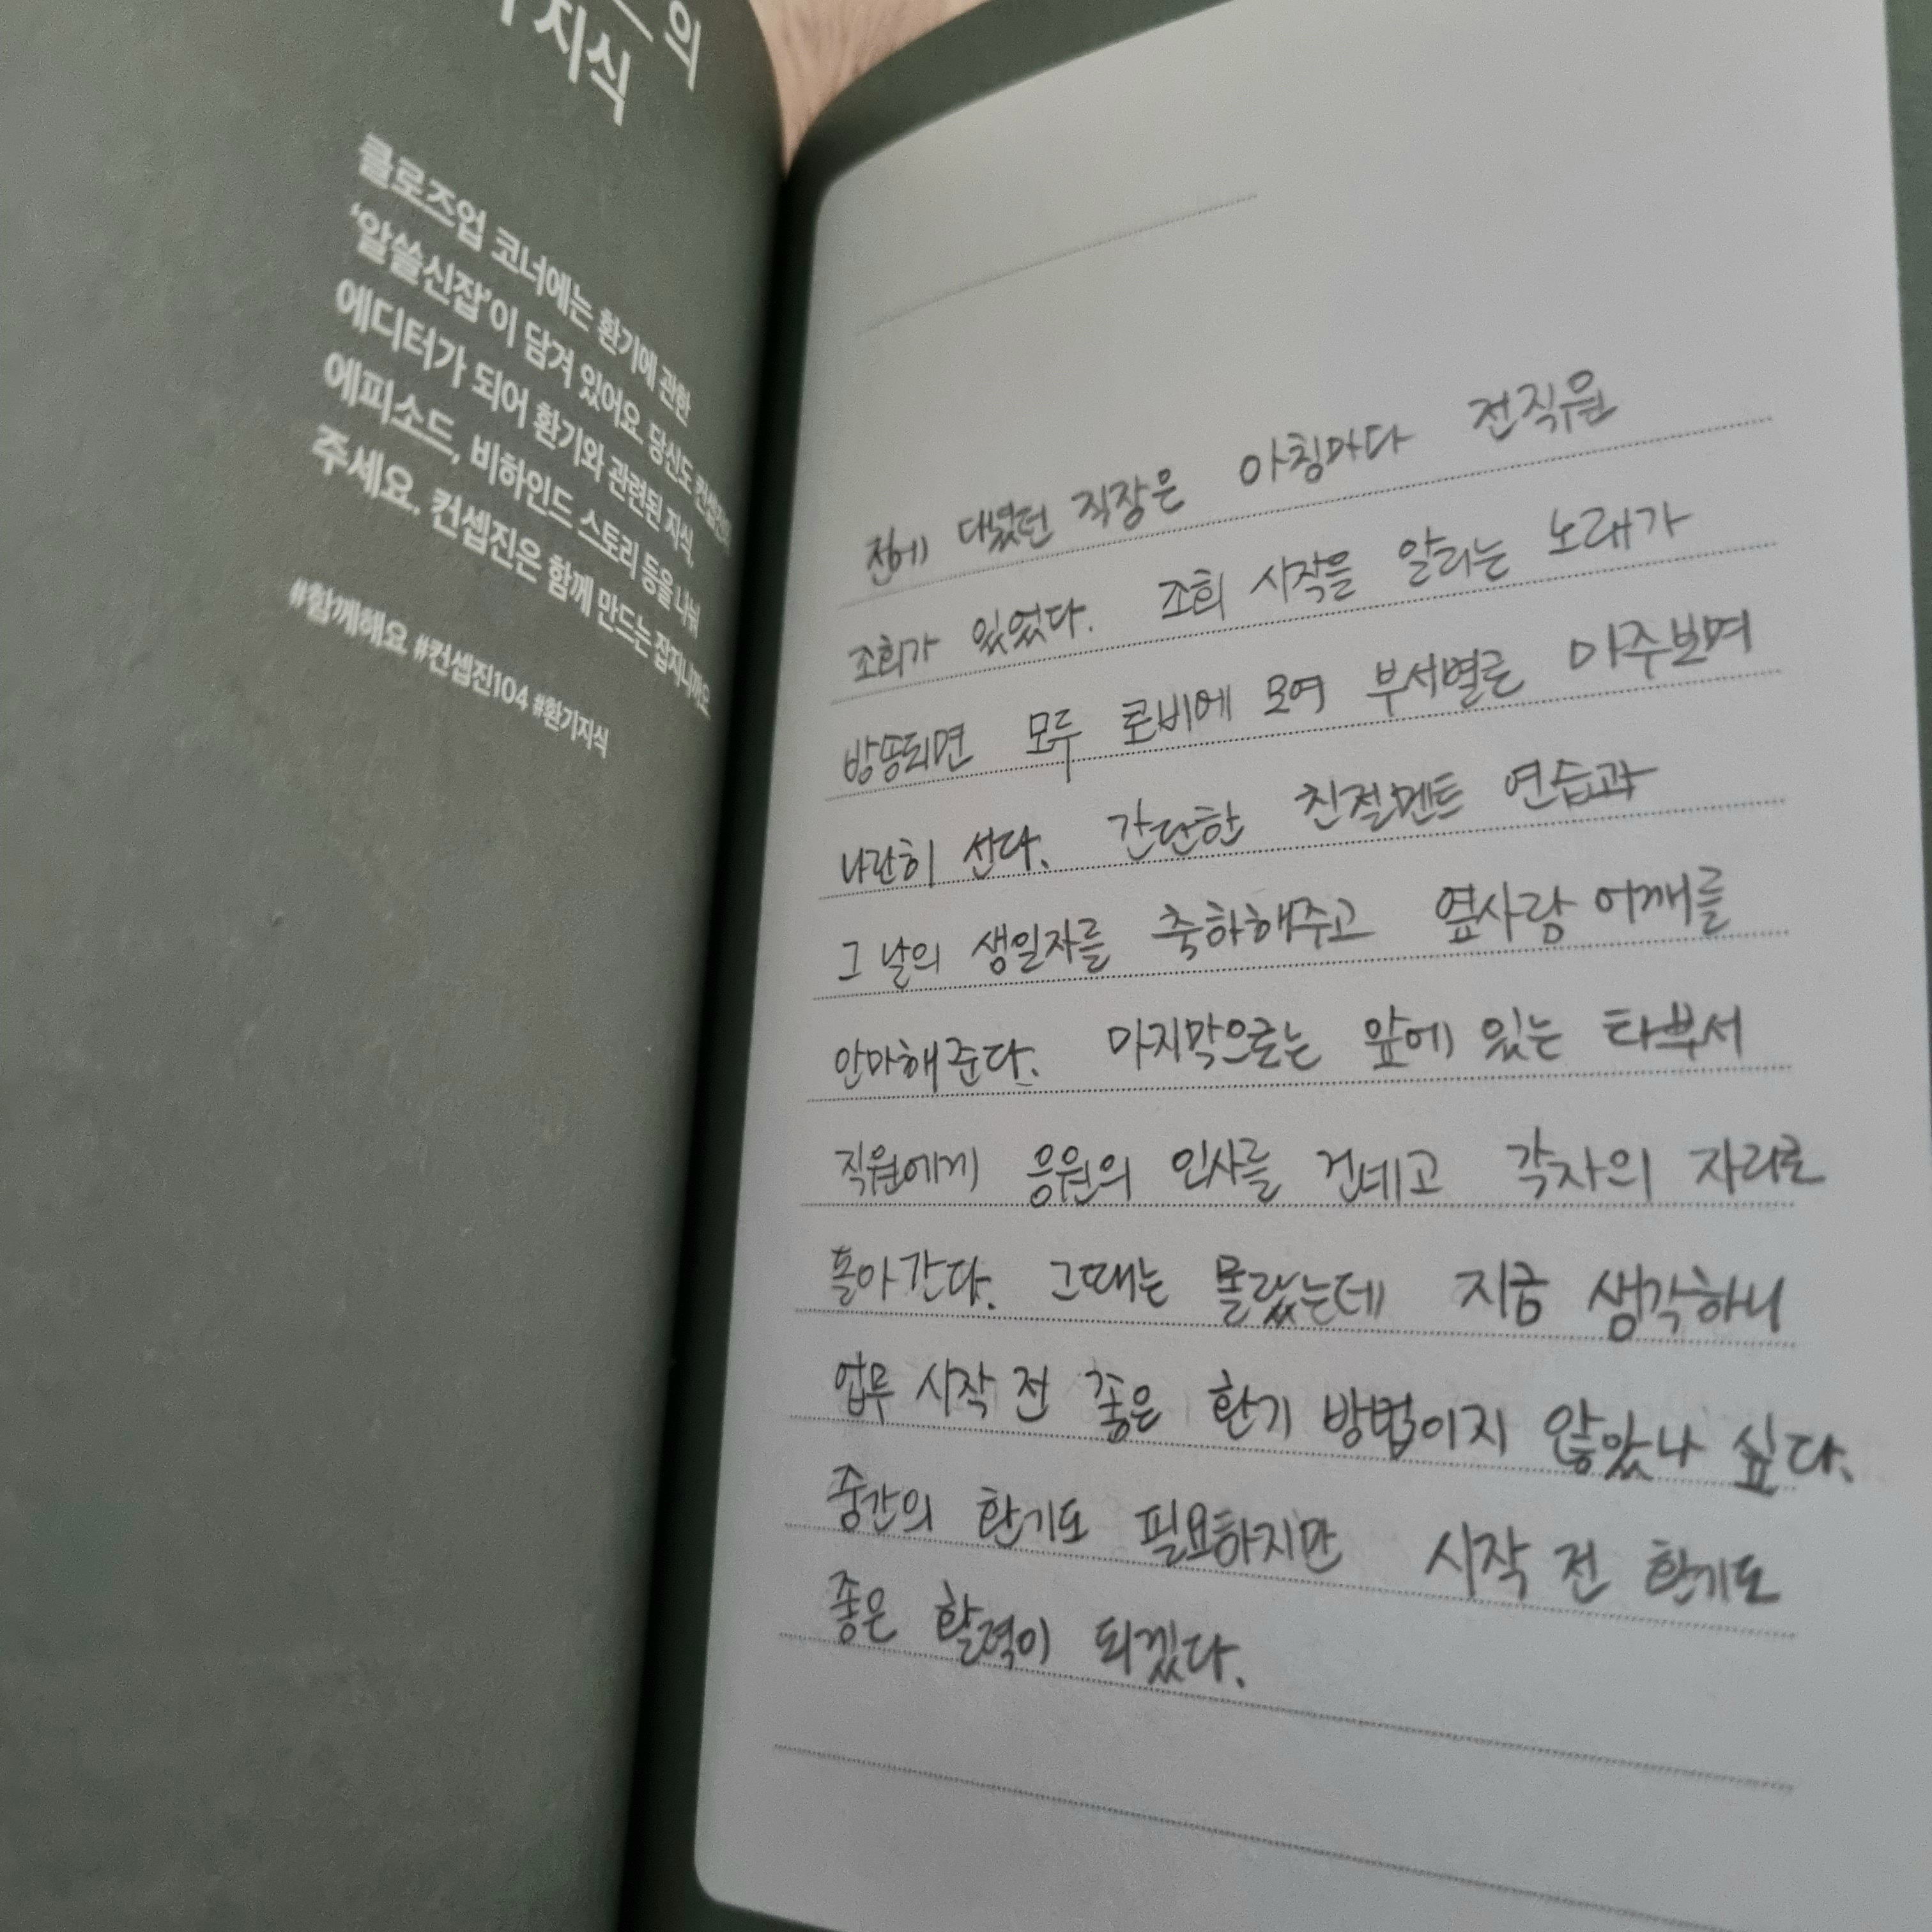 의
지식
클로즈업 코너에는 환기에 관한
‘알쓸신잡’이 담겨 있어요. 당신도 컨셉진의
에디터가 되어 환기와 관련된 지식,
에피소드, 비하인드 스토리 등을 나눠
주세요. 컨셉진은 함께 만드는 잡지니까요.
#함께해요 #컨셉진104 #환기지식
전에 다녔던 직장은 아침마다 전직원
조회가 있었다. 조회 시작을 알리는 노래가
방송되면 모두 로비에 모여 부서별로 마주보며
나란히 선다. 간단한 친절멘트 연습과
그 날의 생일자를 축하해주고 옆사람 어깨를
안마해준다. 마지막으로는 앞에 있는 타부서
직원에게 응원의 인사를 건네고 각자의 자리로
돌아간다. 그때는 몰랐는데 지금 생각하니
업무 시작 전 좋은 환기 방법이지 않았나 싶다.
중간의 환기도 필요하지만 시작 전 환기도
좋은 활력이 되겠다.